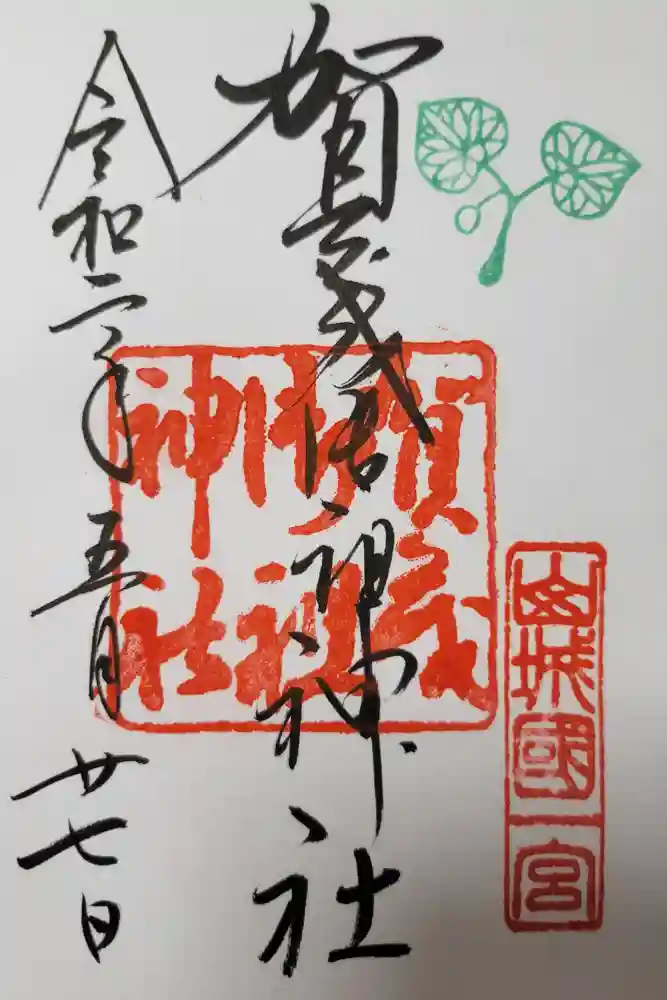 山城國一宮
賀茂御祖神社
賀茂御祖神社
令和二年五月廿七日